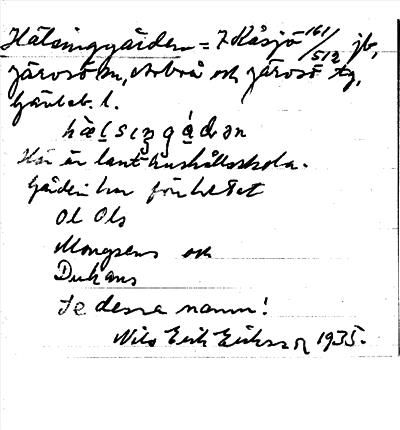 Hälsinggården = 7 Kåsjö 161/512 jb,
Järvsö sn, Arbrå och Järvsö tg,
Gävleb. l.
hælsiŋgádən
Här är lanthushållsskola.
Gården har förr hetat
Ol Ols
Mongsens och
Dukans
Se dessa namn!
Nils Erik Eriksson 1935.